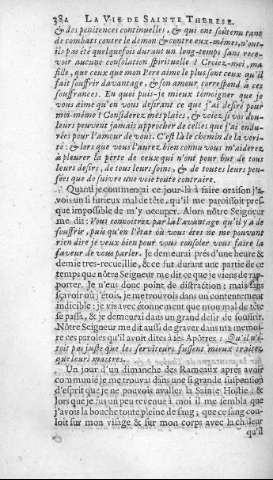 382 LA VIE DE SAINTE THERESE.
& des penitences continuelles, & qui ont soûtenu tant
de combats contre le demon & contre eux-mêmes, n'ont-
ils pas été quelquefois durant un long-temps sans rece-
voir aucune consolation spirituelle ? Croiez-moi, ma
fille, que ceux que mon Pere aime le plus sont ceux qu'il
fait souffrir davantage, & son amour correspond à ces
souffrances. En quoi puis-je mieux témoigner que je
vous aime qu'en vous desirant ce que j'ai desiré pour
moi-même ? Considerez mes plaies, & voiez si vos dou-
leurs pouvoient jamais approcher de celles que j'ai endu-
rées pour l'amour de vous. C'est là le chemin de la veri-
té : & lors que vous l'aurez bien connu vous m'aiderez
à pleurer la perte de ceux qui n'ont pour but de tous
leurs desirs, de tous leurs soins, & de toutes leurs pen-
sées que de suivre une voie toute contraire.
Quand je commençai ce jour-là à faire oraison j'a-
vois un si furieux mal de tête, qu'il me paroissoit pres-
que impossible de m'y occuper. Alors nôtre Seigneur
me dit : Vous connoîtrez par là l'avantage qu'il y a de
souffrir, puis qu'en l'état où vous êtes ne me pouvant
rien dire je veux bien pour vous consoler vous faire la
faveur de vous parler. Je demeurai prés d'une heure &
demie tres-recueillie, & ce fut durant une partie de ce
temps que nôtre Seigneur me dit ce que je viens de rap-
porter. Je n'eu donc point de distraction : mais sans
sçavoir où j'étois, je me trouvois dans un contentement
indicible : je vis avec étonnement que mon mal de tête
se passa, & je demeurai dans un grand desir de souffrir.
Nôtre Seigneur me dit aussi de graver dans ma memoi-
re ces paroles qu'il avoit dites à ses Apôtres : Qu'il n'é-
toit pas juste que les serviteurs fussent mieux traitez
que leurs maîtres.
Un jour d'un dimanche des Rameaux aprés avoir
communié je me trouvai dans une si grande suspention
d'esprit que je ne pouvois avaller la Sainte Hostie : &
lors que je fus un peu revenue à moi il me sembla que
j'avois la bouche toute pleine de sang ; que ce sang cou-
loit sur mon visage & sur mon corps avec la chaleur
qu'il